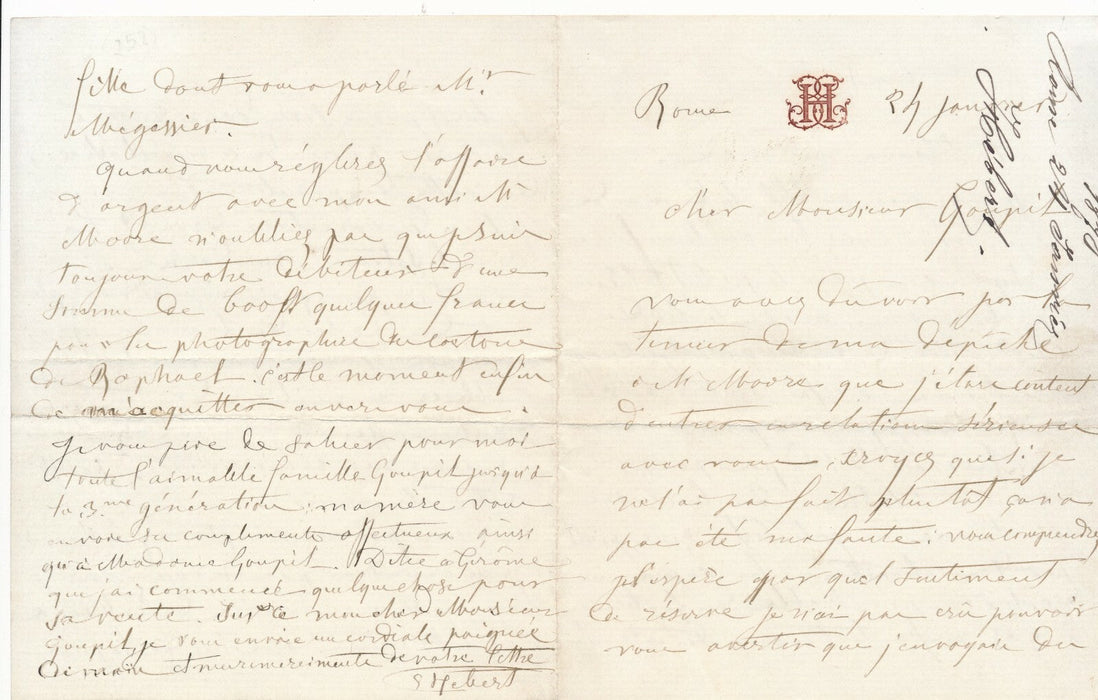 Rome 24 Janvier
1870
Hébert.
Rome 24 janvier
Cher Monsieur Goupil
vous avez dû voir par la
teneur de ma dépêche
à Mr Moore que j'étais content
d'entrer en relations sérieuses
avec vous, croyez que si je
ne l'ai pas fait plutôt ça n'a
pas été ma faute; vous comprendrez
j'espère par quel sentiment
de réserve je n'ai pas crû pouvoir
vous avertir que j'envoyais du
fille dont vous a parlé Mr
quand vous réglerez l'affaire
d'argent avec mon ami Mr
Moore n'oubliez pas que je suis
toujours votre débiteur d'une
somme de quelques francs
pour la photographie du
de Raphael. c'est le moment enfin
de m'acquitter envers vous.
Je vous prie de saluer pour moi
toute l'aimable famille Goupil jusqu'à
la 3me génération; ma mère vous
envoie ses compliments affectueux ainsi
qu'à Madame Goupil. Dites à Gérôme
que j'ai commencé quelque chose pour
sa vente. Sur ce mon cher Monsieur
Goupil, je vous envoie une cordiale poignée
de main et mes remerciments de votre lettre
E Hébert